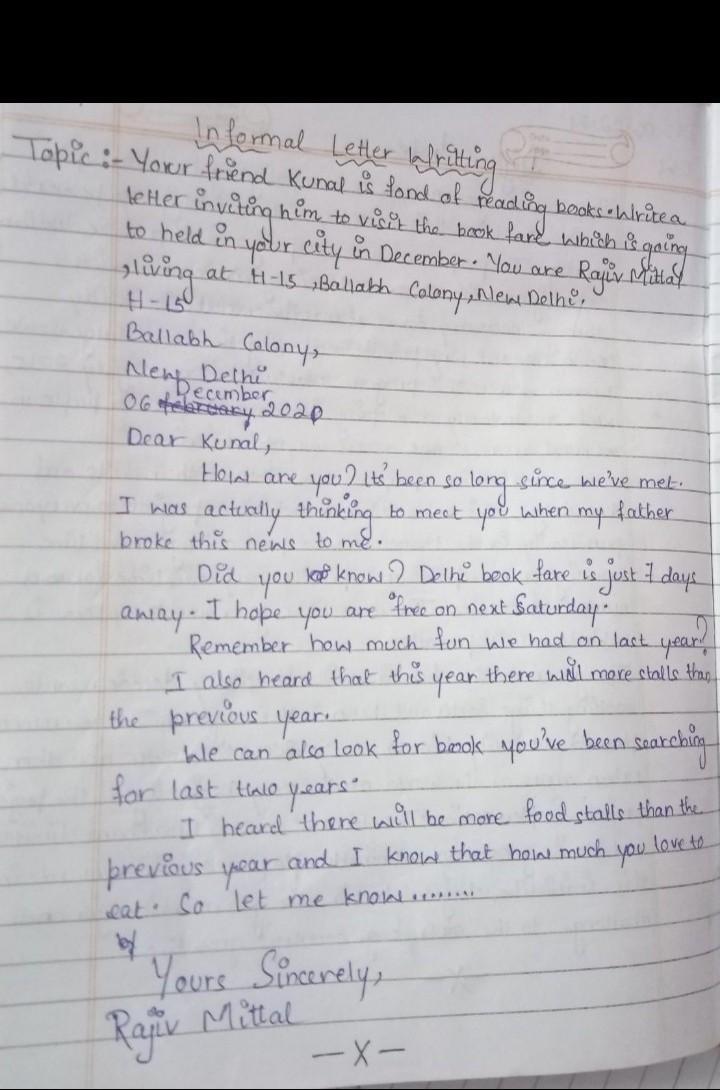 Informal Letter Writting
Topic :- Your friend Kunal is fond of reading books. Write a
letter inviting him to visit the book fare which is going
to held in your city in December. You are Rajiv Mittal
, living at H-15, Ballabh Colony, New Delhi.
H-15
Ballabh Colony,
New Delhi
December
06 february 2020
Dear Kunal,
How are you? Its' been so long since we've met.
I was actually thinking to meet you when my father
broke this news to me.
Did you know? Delhi book fare is just 7 days
away. I hope you are free on next Saturday.
Remember how much fun we had on last year?
I also heard that this year there will more stalls than
the previous year.
We can also look for book you've been searching
for last two years.
I heard there will be more food stalls than the
previous year and I know that how much you love to
eat. So let me know........
Yours Sincerely,
Rajiv Mittal
—X—